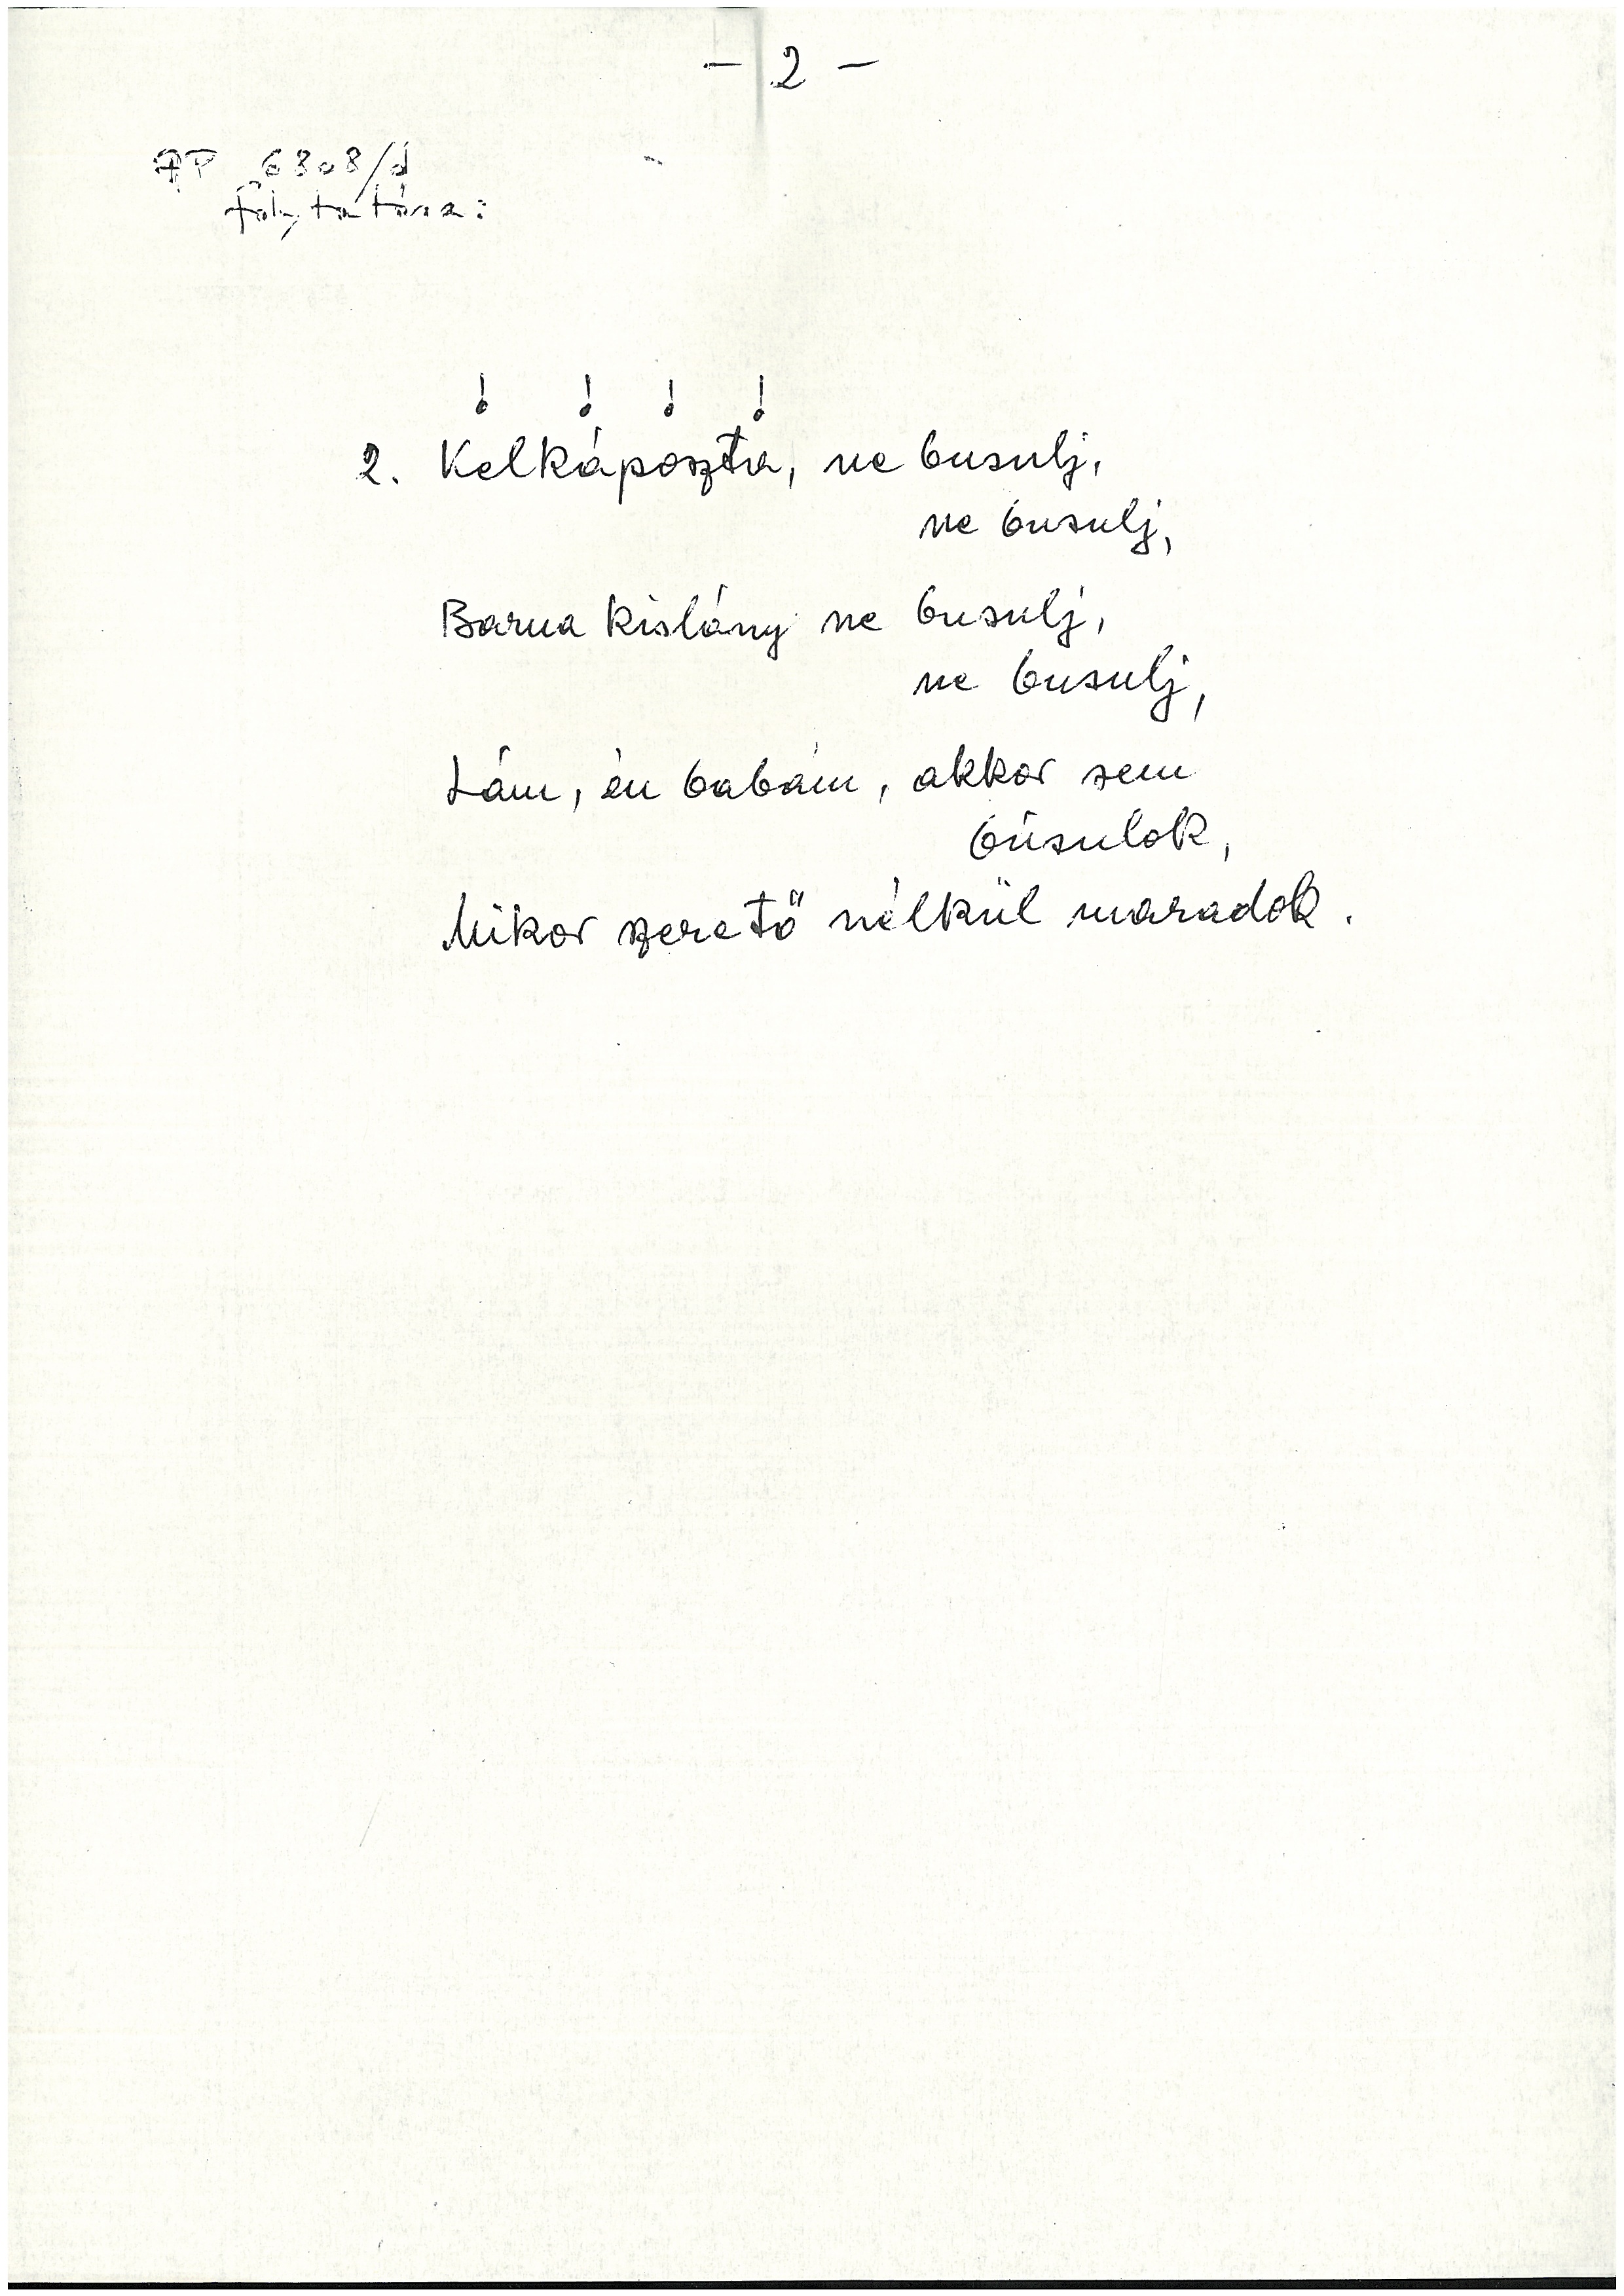 - 2 -
AP 6808/d
folytatása:
! ! ! !
2. Kelkáposzta, ne busulj,
ne busulj,
Barna kislány ne busulj,
ne busulj,
Lám, én babám, akkor sem
búsulok,
Mikor szerető nélkül maradok.